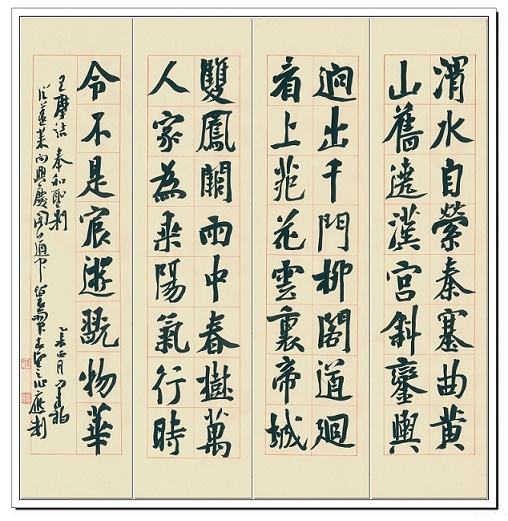 渭水自縈秦塞曲黃
山舊遶漢宮斜鑾輿
逈出千門柳閣道廻
看上苑花雲裏帝城
雙鳳闕雨中春樹萬
人家為乘陽氣行時
令不是宸遊翫物華
王摩詰 奉和聖制
從蓬萊向興慶閣道中留春雨中春望之作應制
正月